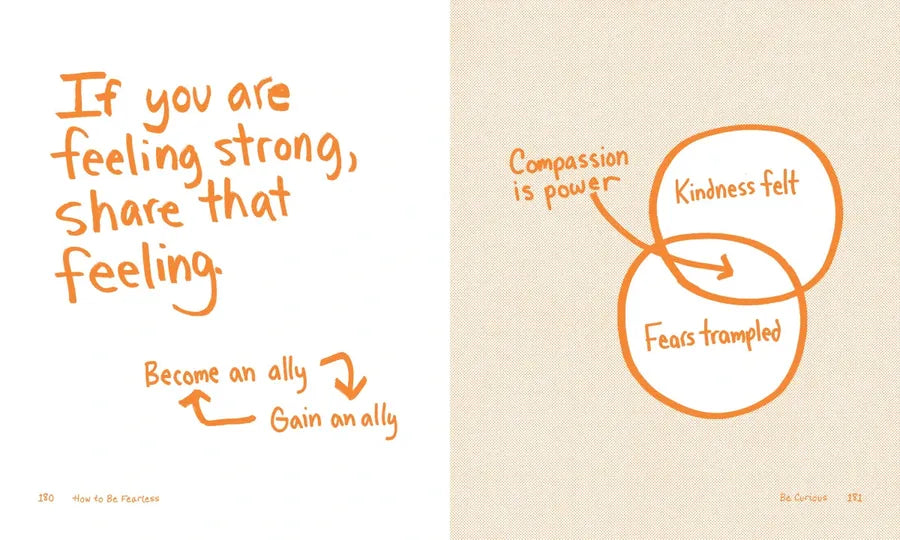 If you are
feeling strong,
share that
feeling.
Become an ally
Gain an ally
180 How to Be Fearless
Compassion
is power
Kindness felt
Fears trampled
Be Curious 181